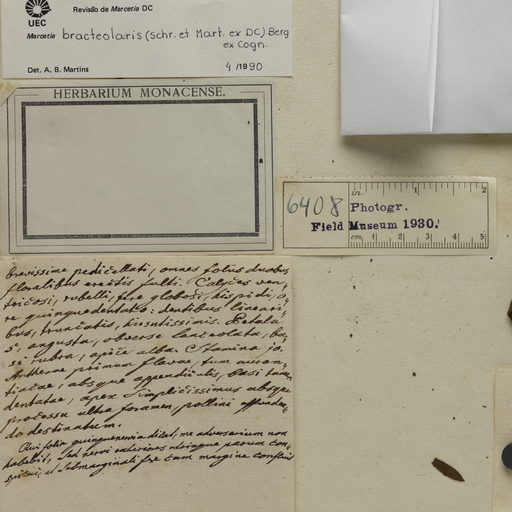 Revisão de Marcetia DC
UEC
Marcetia bracteolaris (Schr. et Mart. ex DC) Berg
ex Cogn.
Det. A. B. Martins
4/1990
HERBARIUM MONACENSE.
6408
in. 1 2
Photogr.
Field Museum 1930.
cm. 1 2 3 4 5
brevissime pedicellati, omnes foliis duobus
floralibus erectis fulti. Calyces ven-
tricosi, rubelli, fere globosi, hispidi, o-
re quinquedentato: dentibus lineari-
bus, truncatis, hirsutissimis. Petala
5, angusta, obverse lanceolata, ba-
si rubra, apice alba. Stamina 10.
Antherae primum flavae, tum auran-
tiacae, absque appendiculis, basi
dentatae, apex simplicissimus absque
processu ultra foramen pollini effunden-
do destinatum.
Qui folia quinquenervia dicat, me adversarium non
habebit, sed nervi exteriores utrinque parum con-
spicui, et submarginali fere cum margine confluit